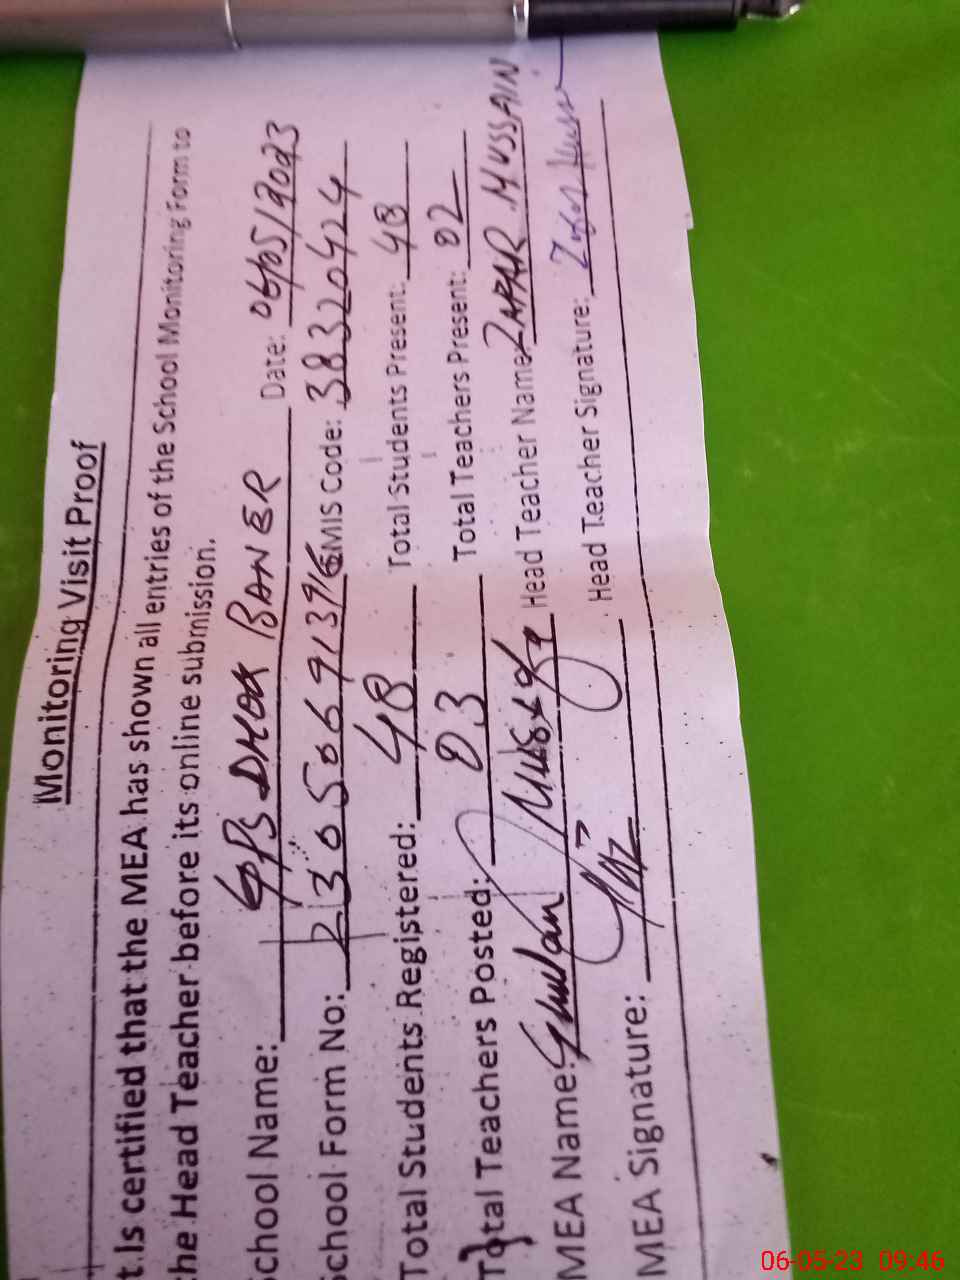 Monitoring Visit Proof
t.Is certified that the MEA has shown all entries of the School Monitoring Form to
the Head Teacher before its online submission.
School Name: GPS DHOK BANER Date: 06/05/2023
School Form No: 23050691396 EMIS Code: 38320424
Total Students Registered: 48 Total Students Present: 48
Total Teachers Posted: 03 Total Teachers Present: 02
MEA Name: Ghulam Head Teacher Name: ZAFAR HUSSAIN
MEA Signature: Head Teacher Signature: Zafar Hussain
06-05-23 09:46